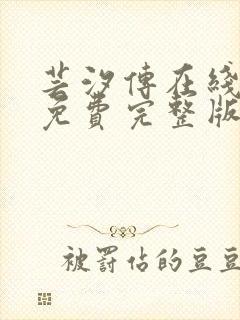 芸汐傳在綫
免費完整版
被罰佔的豆豆